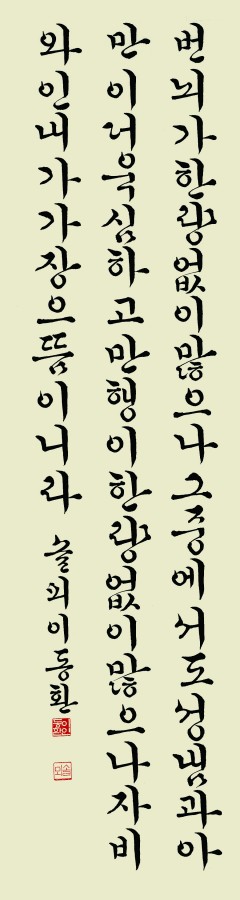 번뇌가한량없이많으나그중에서도성냄과아
만이더욱심하고만행이한량없이많으나자비
와인내가가장으뜸이니라 솔뫼이동환